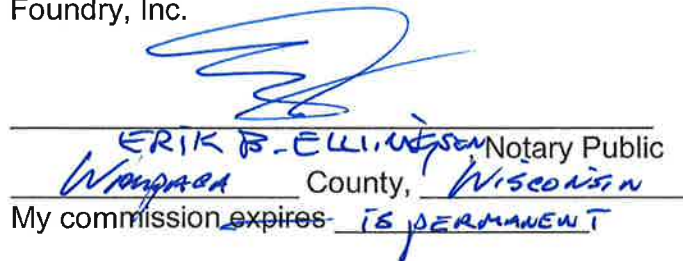 Foundry, Inc.
ERIK B. ELLINGSON, Notary Public
Waupaca County, Wisconsin
My commission expires is permanent